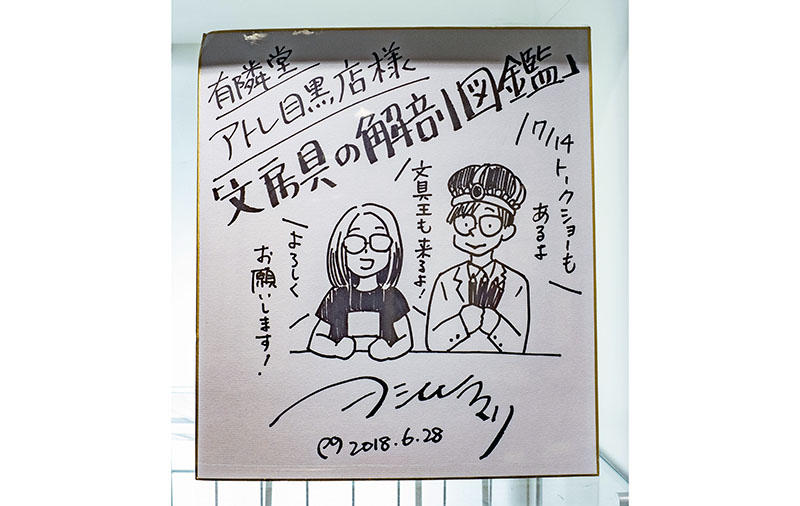 有隣堂
アトレ目黒店様
「文房具の解剖図鑑」
7/14
トークショーも
あるよ
文具王も来るよ!
よろしく
お願いします!
2018.6.28